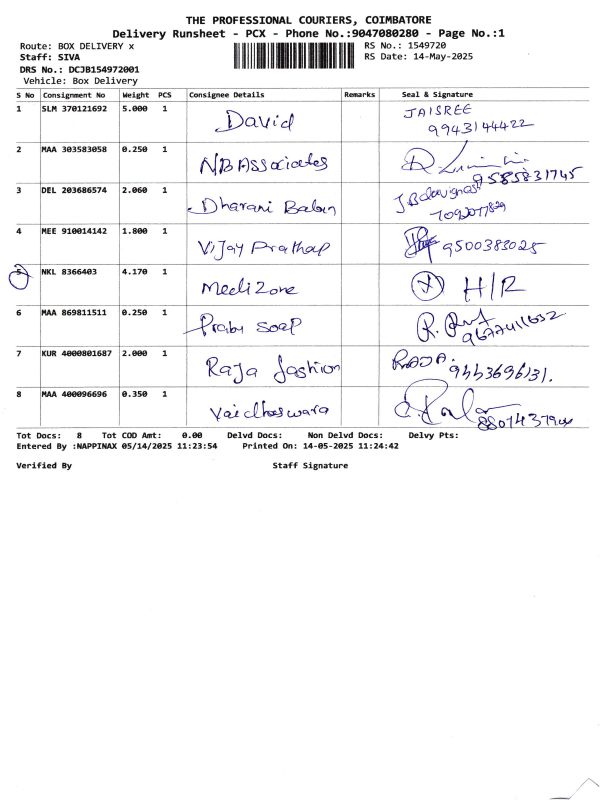 THE PROFESSIONAL COURIERS, COIMBATORE
Delivery Runsheet - PCX - Phone No.:9047080280 - Page No.:1
Route: BOX DELIVERY x RS No.: 1549720
Staff: SIVA RS Date: 14-May-2025
DRS No.: DCJB154972001
Vehicle: Box Delivery
S No Consignment No Weight PCS Consignee Details Remarks Seal & Signature
1 SLM 370121692 5.000 1 David JAISREE
9943144422
2 MAA 303583058 0.250 1 NB Associates
9585831745
3 DEL 203686574 2.060 1 Dharani Babu
4 MEE 910014142 1.800 1 Vijay Prathap 9500383025
5 NKL 8366403 4.170 1 Medizone H/R
6 MAA 869811511 0.250 1 Prabu soap
7 KUR 4000801687 2.000 1 Raja fashion RAJA.
9443696131.
8 MAA 400096696 0.350 1 Vaidheswara
Tot Docs: 8 Tot COD Amt: 0.00 Delvd Docs: Non Delvd Docs: Delvy Pts:
Entered By :NAPPINAX 05/14/2025 11:23:54 Printed On: 14-05-2025 11:24:42
Verified By Staff Signature